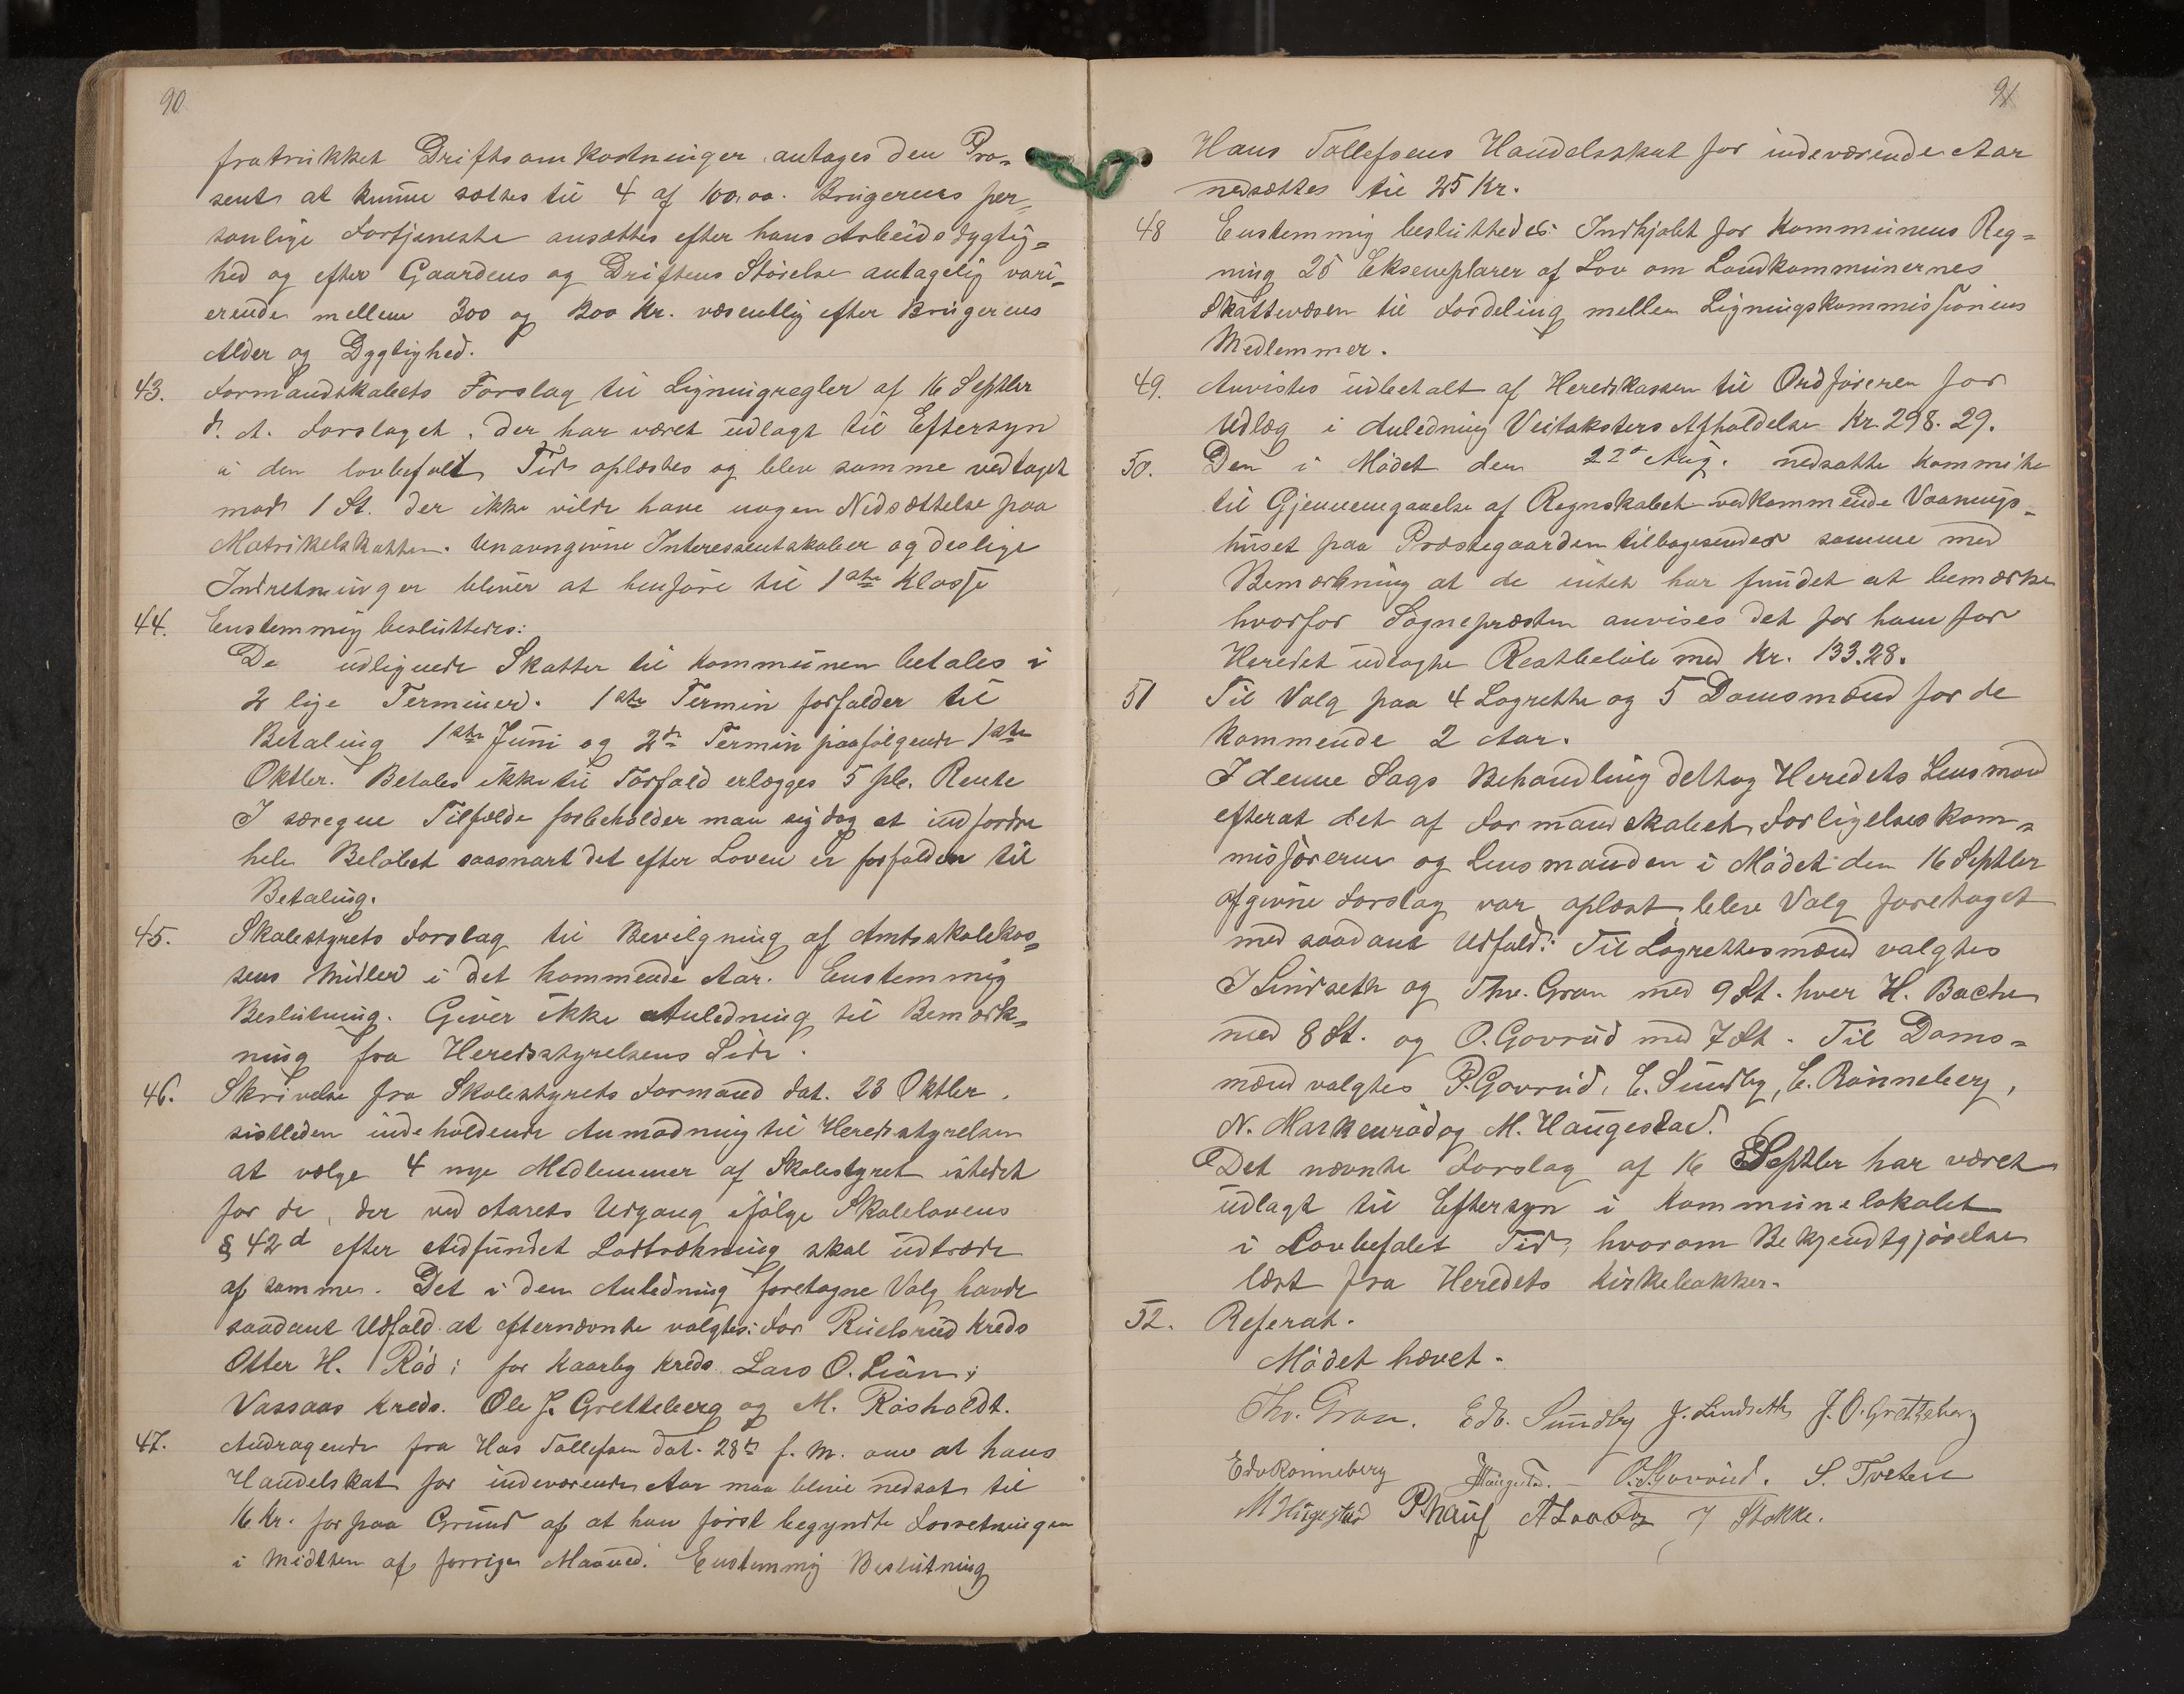 90
fratrukket Driftsomkostninger antages den Pro-
sent at kunne sættes til 4 af 100,00. Brugerens per-
sonlige Fortjeneste ansættes efter hans Arbeidsdygtig-
hed og efter Gaardens og Driftens Störelse antagelig vari-
erende mellem 300 og 1200 Kr. væsentlig efter Brugerens
Alder og Dygtighed.
43. Formandskabets Forslag til Ligningregler af 16 Septbr
d. A. Forslaget, der har været udlagt til Eftersyn
i den lovbefalt Tid oplæstes og blev samme vedtaget
mod 1 St. der ikke vilde have nogen Nedsættelse paa
Matrikelskatten. Unavngivne Interessentskaber og deslige
Indretninger bliver at henföre til 1ste Klasse
44. Enstemmig besluttedes:
De udlignede Skatter til Kommunen betales i
2 lige Terminer. 1ste Termin forfalder til
Betaling 1ste Juni og 2den Termin paafölgende 1ste
Oktbr. Betales ikke til Forfald erlægges 5 pCt. Rente
I særegne Tilfælde forbeholder man sig dog at indfordre
hele Belöbet saasnart det efter Loven er forfalden til
Betaling.
45. Skolestyrets Forslag til Bevilgning af Amtsskolekas-
sens Midler i det kommende Aar. Enstemmig
Beslutning. Giver ikke Anledning til Bemærk-
ning fra Heredsstyrelsens Side.
46. Skrivelse fra Skolestyrets Formand dat. 23 Oktbr.
sistleden indeholdende Anmodning til Heredsstyrelsen
at vælge 4 nye Medlemmer af Skolestyret istedet
for de, der ved Aarets Udgang ifölge Skolelovens
§ 42d efter stedfundet Lodtrækning skal udtræde
af samme. Det i den Anledning foretagne Valg havde
saadant Udfald at efternævnte valgtes: For Ruelsrud Kreds
Otter H. Röd; for Kaarby Kreds Lars O. Lián;
Vassaas Kreds. Ole J. Gretteberg og M. Rösholdt.
47. Andragende fra Has Tollefsen dat. 28de f. M. om at hans
Handelskat for indeværende Aar maa blive nedsat til
16 Kr. for paa Grund af at han först begyndte Forretningen
i Midten af forrige Maaned. Enstemmig Beslutning
91
Hans Tollefsens Handelsskat for indeværende Aar
nedsættes til 25 Kr.
48 Enstemmig besluttedes: Indkjöbt for Kommunens Reg-
ning 25 Eksemplarer af Lov om Landkommunernes
Skattevæsen til Fordeling mellem Ligningskommissionens
Medlemmer.
49. Anvistes udbetalt af Heredskassen til Ordföreren for
Udlæg i Anledning Veitaksters Afholdelse Kr. 298.29.
50. Den i Mödet den 22de Aug. nedsatte Kommite
til Gjennemgaaelse af Regnskabet vedkommende Vaanings-
huset paa Præstegaarden tilbagesender samme med
Bemærkning at de intet har fundet at bemærke
hvorfor Sognepræsten anvises det for ham for
Heredet udlagte Restbelöb med Kr. 133.28.
51 Til Valg paa 4 Lagrette og 5 Domsmænd for de
kommende 2 Aar.
I denne Sags Behandling deltog Heredets Lensmand
efterat det af Formandskabet, Forligelseskom-
missörerne og Lensmanden i Mödet den 16 Septbr
afgivne Forslag var oplæst, blev Valg foretaget
med saadant Udfald: Til Lagrettesmænd valgtes
J Lindseth og Thv. Gran med 9 St. hver H. Bache
med 8 St. og O. Gavrud med 7 St. Til Doms-
mænd valgtes P. Gavrud, E. Sundby, E. Rönneberg,
N. Markeuröd og M. Haugestad.
Det nævnte Forslag af 16 Septbr har været
udlagt til Eftersyn i Kommunelokalet
i Lovbefalet Tid, hvorom Bekjendtgjörelse
læst fra Heredets Kirkebakker.
52. Referat.
Mödet hævet.
Thv. Gran. Edv. Sundby J. Lindseth J. O. Gretteberg
Edv Ronneberg Haugestad. O. Gavrud. S. Tveten
M Hugestad J Stokke.